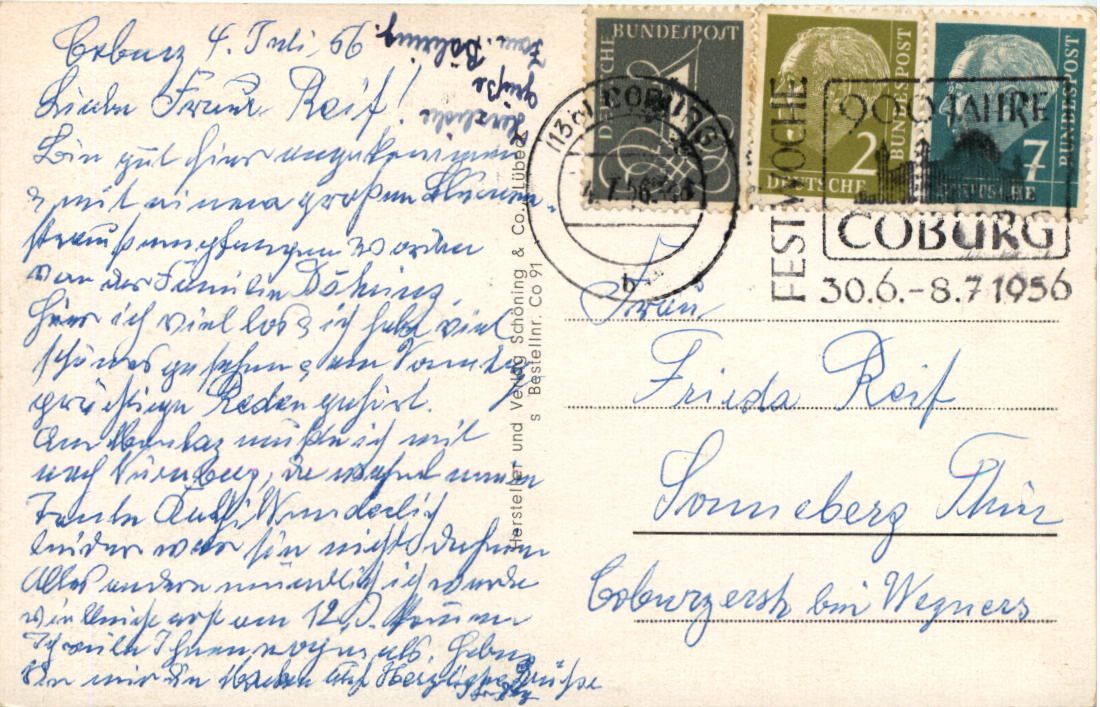 Coburg 4. Juli 56
Liebe Fraun Reif!
Bin gut hier angekommen
u mit einem großen Blumen-
strauß empfangen worden
von der Familie Döhring.
Hier ist viel los & ich habe viel
schönes gesehen & am Sonntag
prächtige Reden gehört.
Am Montag mußte ich mit
nach Nürnberg, da wohnt meine
Tante Wunderlich
leider war sie nicht daheim
Alles andere mündlich ich werde
am 12. D. kommen
Ihnen nochmals.
Herzliche Grüße
Herzliche
Grüße
Fam. Döhring.
Hersteller und Verlag Schöning & Co., Lübeck
s Bestellnr. Co 91
DEUTSCHE BUNDESPOST
2
DEUTSCHE
BUNDESPOST
7
DEUTSCHE
BUNDESPOST
(13a) COBURG
4.7.56
b
FESTWOCHE
900 JAHRE
COBURG
30.6.-8.7.1956
Frau
Frieda Reif
Sonneberg Thür
Coburgerstr bei Wegners